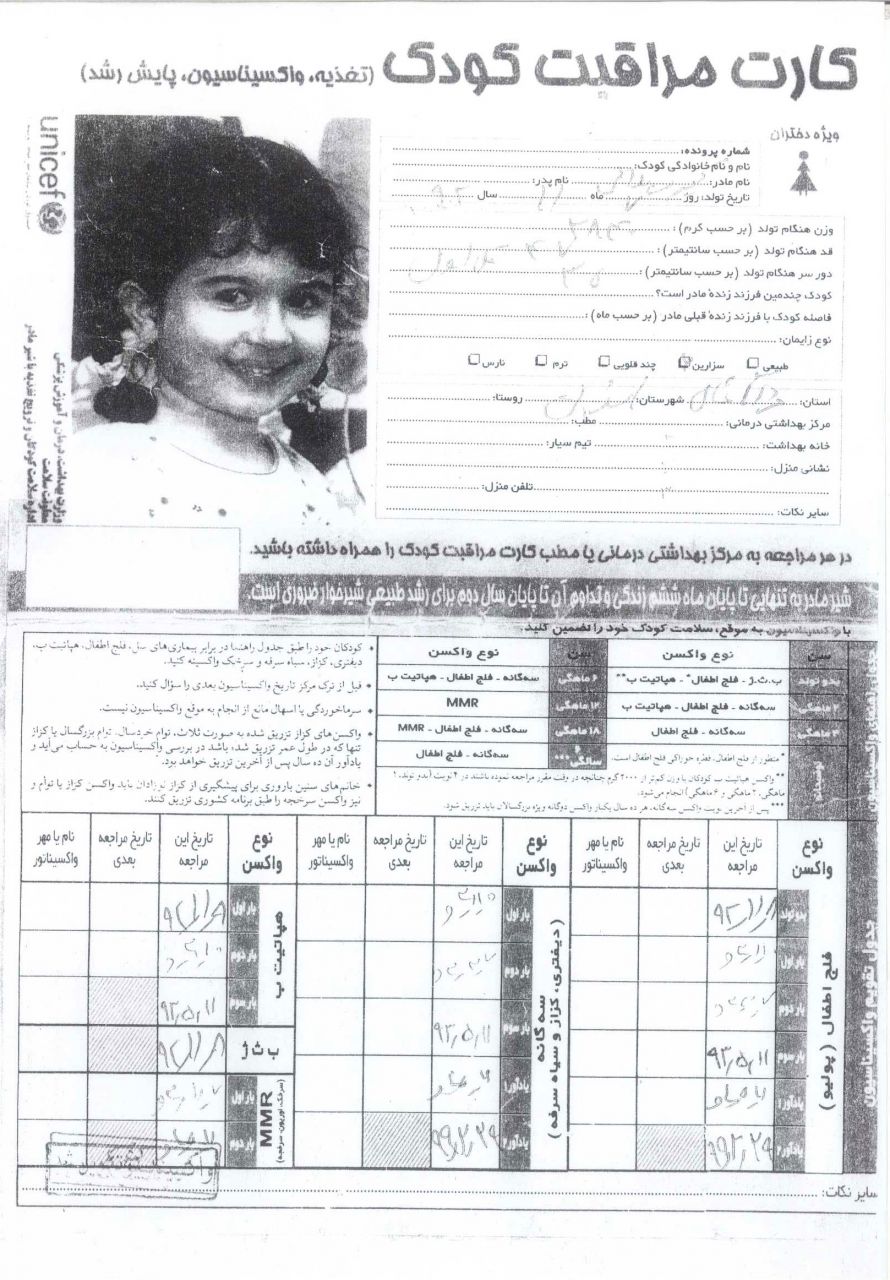 کارت مراقبت کودک (تغذیه، واکسیناسیون، پایش رشد)
ویژه دختران
unicef
شماره پرونده:
نام و نام‌خانوادگی کودک:
نام مادر: نام پدر:
تاریخ تولد: روز ماه ۱۱ سال ۹۲
وزن هنگام تولد (بر حسب گرم):
قد هنگام تولد (بر حسب سانتیمتر):
دور سر هنگام تولد (بر حسب سانتیمتر):
کودک چندمین فرزند زندهٔ مادر است؟
فاصله کودک با فرزند زندهٔ قبلی مادر (بر حسب ماه):
نوع زایمان:
طبیعی سزارین چند قلویی ترم نارس
استان: شهرستان: روستا:
مرکز بهداشتی درمانی: مطب:
خانه بهداشت: تیم سیار:
نشانی منزل:
تلفن منزل:
سایر نکات:
وزارت بهداشت، درمان و آموزش پزشکی
معاونت سلامت
اداره سلامت کودکان و ترویج تغذیه با شیر مادر
در هر مراجعه به مرکز بهداشتی درمانی یا مطب کارت مراقبت کودک را همراه داشته باشید.
شیر مادر به تنهایی تا پایان ماه ششم زندگی و تداوم آن تا پایان سال دوم برای رشد طبیعی شیرخوار ضروری است.
با واکسیناسیون به موقع، سلامت کودک خود را تضمین کنید.
سن نوع واکسن سن نوع واکسن
بدو تولد ب.ث.ژ - فلج اطفال* - هپاتیت ب** ۶ ماهگی سه‌گانه - فلج اطفال - هپاتیت ب
۲ ماهگی سه‌گانه - فلج اطفال - هپاتیت ب ۱۲ ماهگی MMR
۴ ماهگی سه‌گانه - فلج اطفال ۱۸ ماهگی سه‌گانه - فلج اطفال - MMR
۶ سالگی*** سه‌گانه - فلج اطفال
توضیحات
* منظور از فلج اطفال، قطره خوراکی فلج اطفال است.
** واکسن هپاتیت ب کودکان با وزن کم‌تر از ۲۰۰۰ گرم چنانچه در وقت مقرر مراجعه نموده باشند در ۴ نوبت (بدو تولد، ۱
ماهگی، ۲ ماهگی و ۶ ماهگی) انجام می‌شود.
*** پس از آخرین نوبت واکسن سه‌گانه، هر ده سال یکبار واکسن دوگانه ویژه بزرگسالان باید تزریق شود.
• کودکان خود را طبق جدول راهنما در برابر بیماری‌های سل، فلج اطفال، هپاتیت ب،
دیفتری، کزاز، سیاه سرفه و سرخک واکسینه کنید.
• قبل از ترک مرکز تاریخ واکسیناسیون بعدی را سؤال کنید.
• سرماخوردگی یا اسهال مانع از انجام به موقع واکسیناسیون نیست.
• واکسن‌های کزاز تزریق شده به صورت ثلاث، توام خردسال، توام بزرگسال یا کزاز
تنها که در طول عمر تزریق شده باشد در بررسی واکسیناسیون به حساب می‌آید و
یادآور آن ده سال پس از آخرین تزریق خواهد بود.
• خانم‌های سنین باروری برای پیشگیری از کزاز نوزادان باید واکسن کزاز یا توأم و
نیز واکسن سرخجه را طبق برنامه کشوری تزریق کنند.
جدول تقویم واکسیناسیون
نوع واکسن تاریخ این مراجعه تاریخ مراجعه بعدی نام یا مهر واکسیناتور
فلج اطفال (پولیو)
بدو تولد ۹۲/۱۱/۸
بار اول
بار دوم
بار سوم ۹۳/۵/۱۱
یادآور۱
یادآور۲ ۹۹/۲/۲۹
نوع واکسن تاریخ این مراجعه تاریخ مراجعه بعدی نام یا مهر واکسیناتور
سه‌گانه (دیفتری، کزاز و سیاه سرفه)
بار اول
بار دوم
بار سوم ۹۳/۵/۱۱
یادآور۱
یادآور۲ ۹۹/۲/۲۹
نوع واکسن تاریخ این مراجعه تاریخ مراجعه بعدی نام یا مهر واکسیناتور
هپاتیت ب
بار اول ۹۲/۱۱/۸
بار دوم
بار سوم ۹۳/۵/۱۱
ب ث ژ ۹۲/۱۱/۸
MMR (سرخک، اوریون، سرخجه)
بار اول
بار دوم
سایر نکات: